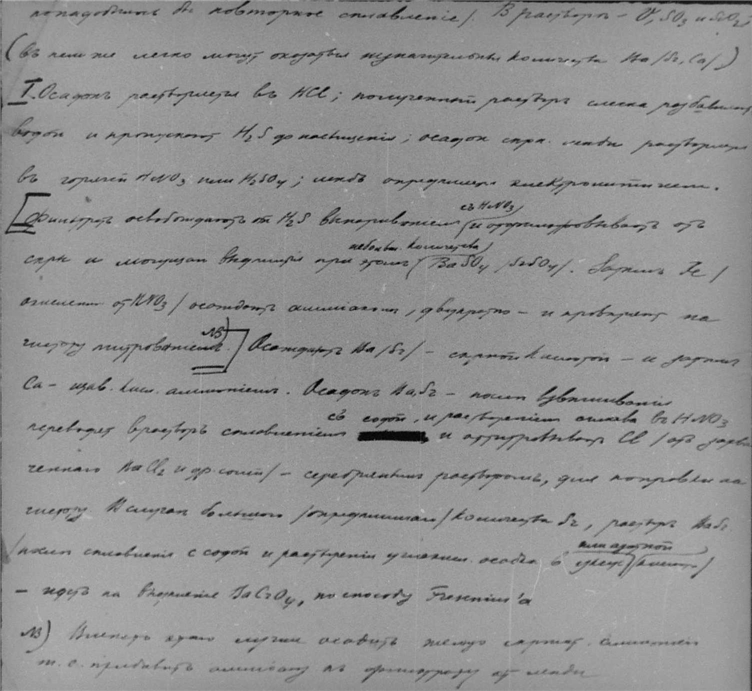 понадобилось бы повторное сплавленiе/. В растворѣ – SO3 и SiO2
(въ нем же легко могут оказаться незначительныя количества Ba /Sr, Ca/)
I. Осадокъ растворяется въ HCl; полученный растворъ слегка разбавляют
водой и пропускают H2S до насыщенiя; осадок сѣрн. мѣди растворяют
въ горячей HNO3 или H2SO4; мѣдь опредѣляют электролитически.
[Фильтратъ освобождаютъ от H2S выпариванiем съ HNO3 и отфильтровываютъ от
сѣры и могущаго выдѣлиться при этомъ небольш. количества BaSO4 /SrSO4/. Затѣмъ Fe /
окисленн. от HNO3/ осаждают аммiаком, двукратно – и провѣряют на
чистоту титрованiемъ. NB)] Осаждаютъ Ba /Sr/ – сѣрной кислотой – и затѣм
Ca – щав. кисл. аммонiем. Осадокъ Ba, Sr – послѣ взвѣшиванiя
переводят в растворъ сплавленiем съ содой, и растворенiем сплава въ HNO3
и оттитровывают Cl /от захва
ченнаго BaCl2 и др. солей/ – серебряным раствором, для поправки на
чистоту. В случаѣ большого /опредѣлимаго/ количества Sr, растворъ Ba, Sr
/послѣ сплавленiя с содой и растворенiи углекисл. осадка в уксус. или азотной кислотѣ/
– идетъ на выдѣленiе BaCrO4, по способу Fresenius'а
NB) лучше осадить желѣзо аммiаком
т. о. прибавить аммiаку къ фильтрату от мѣди